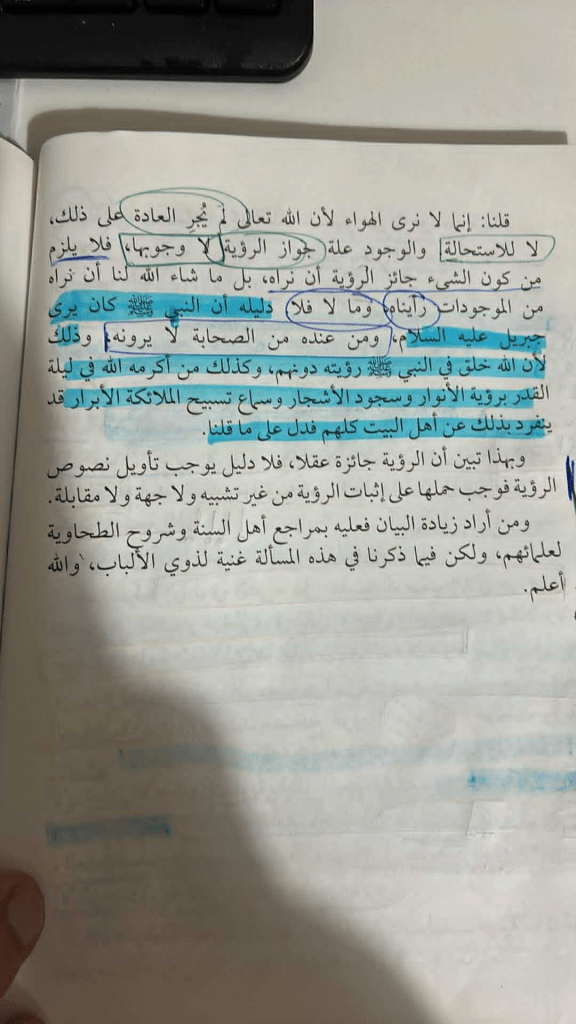 قلنا: إنما لا نرى الهواء لأن الله تعالى لم يُجرِ العادة على ذلك،
لا للاستحالة والوجود علة جواز الرؤية لا وجوبها، فلا يلزم
من كون الشيء جائز الرؤية أن نراه، بل ما شاء الله لنا أن نراه
من الموجودات رأيناه، وما لا فلا، دليله أن النبي ﷺ كان يرى
جبريل عليه السلام، ومن عنده من الصحابة لا يرونه، وذلك
لأن الله خلق في النبي ﷺ رؤيته دونهم، وكذلك من أكرمه الله في ليلة
القدر برؤية الأنوار وسجود الأشجار وسماع تسبيح الملائكة الأبرار قد
ينفرد بذلك عن أهل البيت كلهم فدل على ما قلنا.
وبهذا تبين أن الرؤية جائزة عقلا، فلا دليل يوجب تأويل نصوص
الرؤية فوجب حملها على إثبات الرؤية من غير تشبيه ولا جهة ولا مقابلة.
ومن أراد زيادة البيان فعليه بمراجع أهل السنة وشروح الطحاوية
لعلمائهم، ولكن فيما ذكرنا في هذه المسألة غنية لذوي الألباب، والله
أعلم.